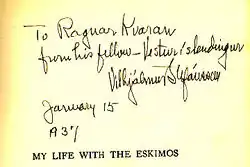 To Ragnar Kvaran
from his fellow-Vestur Íslendingur
Vilhjálmur Stefánsson
January 15
1937
MY LIFE WITH THE ESKIMOS